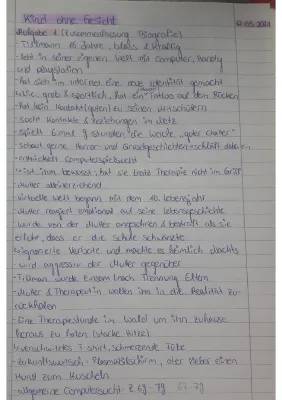 Kind ohne Gesicht
Aufgabe 1 (Zusammenfassung Biografie)
- Tillmann 16 Jahre, blass &
- lebt in seiner eigenen Welt mit Computer, Handy
und playstation
- hat sich im internet eine neue identität gemacht
groß & sportlich, hat ein Tattoo auf dem Rücken
- hat kein Kontakt (guten) zu seinen Mitschülern
- sucht Kontakte & beziehungen im Netz
- spielt stunden die woche,
- schaut gerne Horror- und Gruselgeschichten
- entwickelt computerspielsucht
- ist ihm bewusst, hat sie trotz Therapie nicht im Griff
- Mutter alleinerziehend
- virtuelle Welt begann mit dem 10. Lebensjahr
- Mutter reagiert emotional auf seine Lebensgeschichte
- wurde von der Mutter angeschrien & bestraft als sie
erfuhr, dass er die Schule schwänzte
- ignorierte Verbote und machte es heimlich nachts
- wird aggressiv der Mutter gegenüber
- Tillmann wurde Einsam nach Trennung Eltern
- Mutter & Therapeutin wollen ihn in die Realität zu-
rückholen
- Eine Therapiestunde im Wald um ihn zuhause
heraus zu holen (starke Hitze)
- verschwitztes T-shirt, schmerzende Füße
- zukunftswunsch - Plasmabildschirm, aber lieber einen
Hund zum Kuscheln
- allgemeine Computersucht